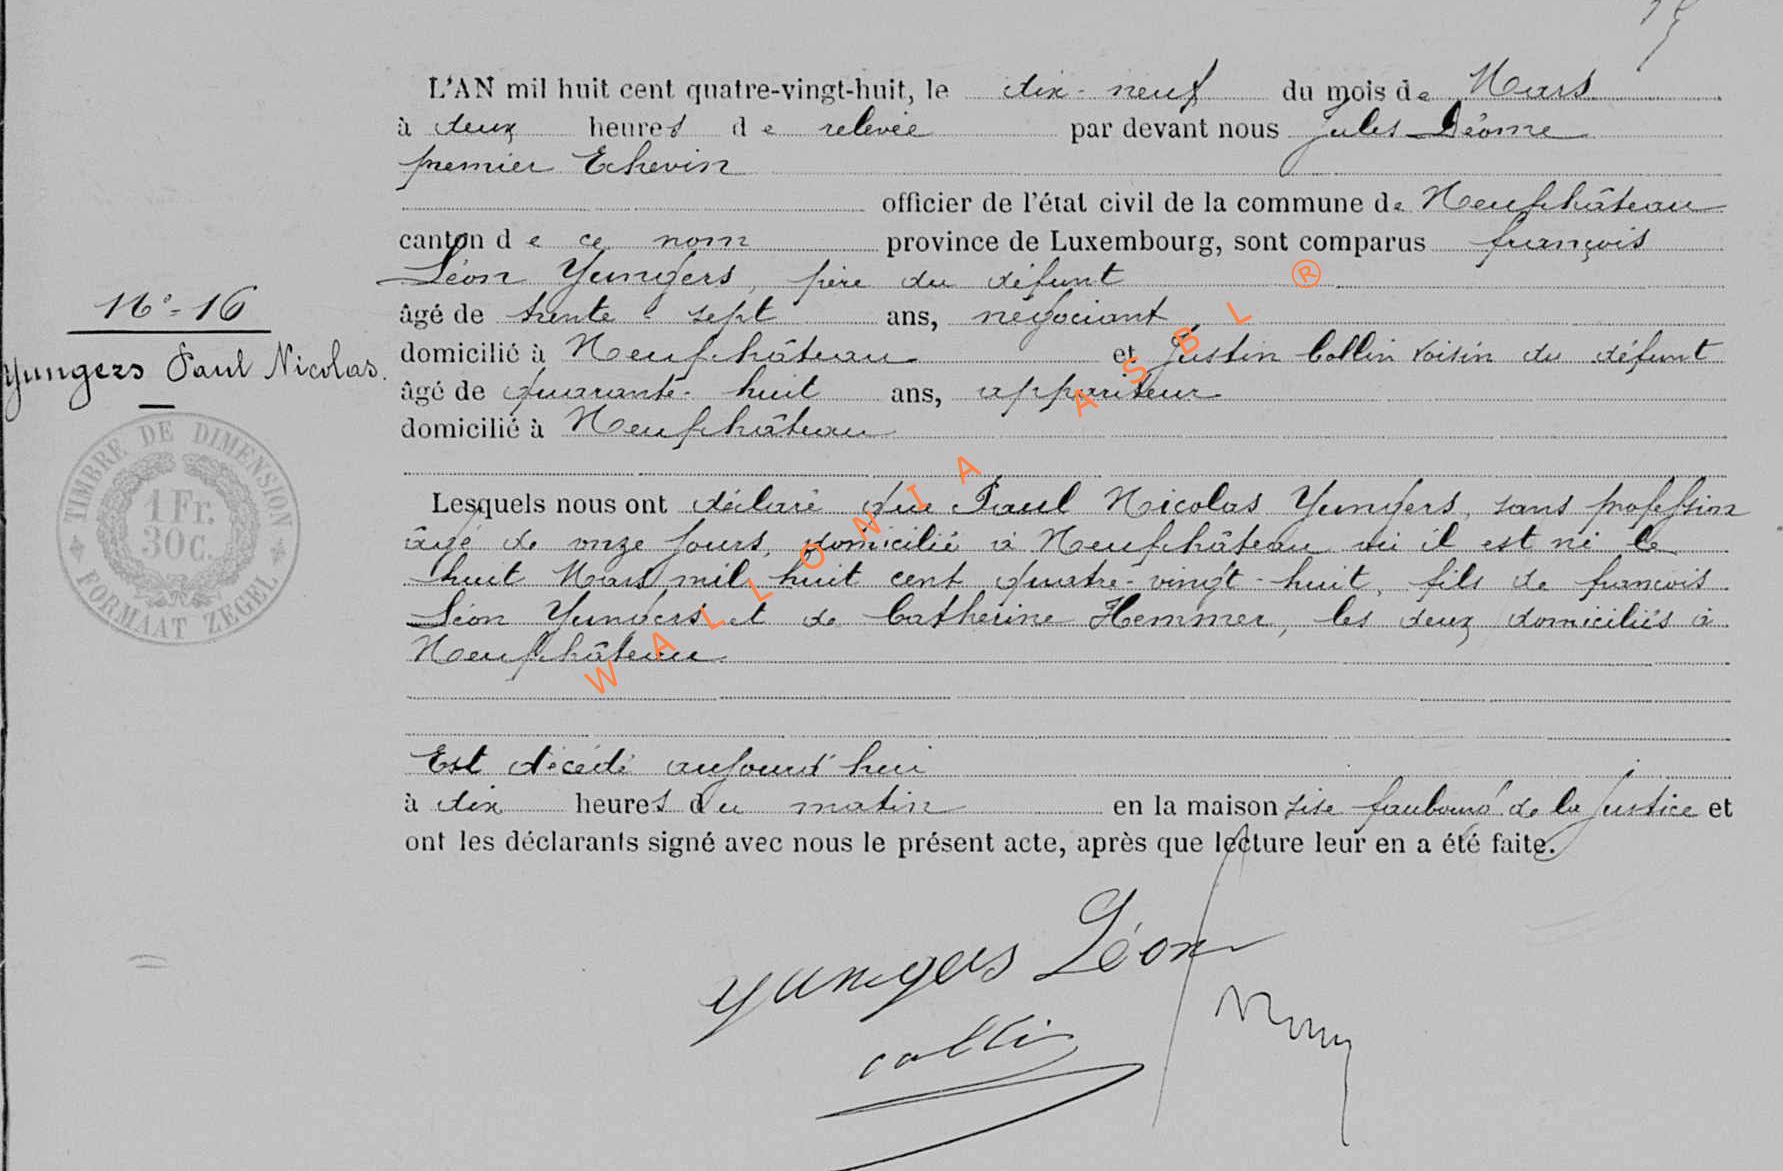 L'AN mil huit cent quatre-vingt-huit, le dix-neuf du mois de Mars
à deux heures de relevée par devant nous Jules Déome
premier Echevin
officier de l'état civil de la commune de Neufchâteau
canton de ce nom province de Luxembourg, sont comparus françois
Léon Yungers, père du défunt
âgé de trente-sept ans, négociant
domicilié à Neufchâteau et Justin Collin voisin du défunt
âgé de quarante-huit ans, appariteur
domicilié à Neufchâteau
N° 16
Yungers Paul Nicolas.
TIMBRE DE DIMENSION
1 Fr.
30 C.
FORMAAT ZEGEL
Lesquels nous ont déclaré que Paul Nicolas Yungers, sans profession
âgé de onze jours, domicilié à Neufchâteau où il est né le
huit Mars mil huit cent quatre-vingt-huit, fils de françois
Léon Yungers et de Catherine Hemmer, les deux domiciliés à
Neufchâteau
Est décédé aujourd'hui
à dix heures du matin en la maison sise faubourg de la Justice et
ont les déclarants signé avec nous le présent acte, après que lecture leur en a été faite.
Yungers Léon
collin
WALLONIA ASBL ®